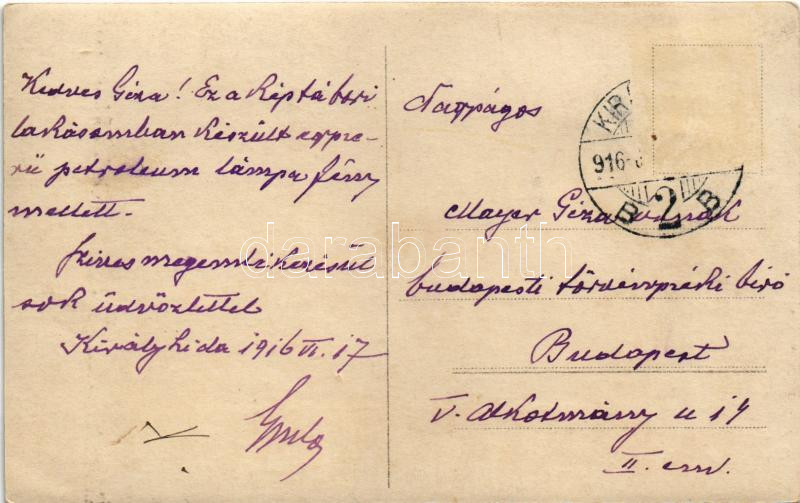 Kedves Géza! Ez a képtábori
lakásomban készült egysze-
rű petroleum lámpa fény
mellett.
Szíves megemlékezésül
sok üdvözlettel
Királyhida 1916 VI. 17
Gyula
Nagyságos
Mayer Géza úrnak
budapesti törvényszéki biró
Budapest
V. Alkotmány u 14
II. em.
KIR
916
B 2 B
darabanth